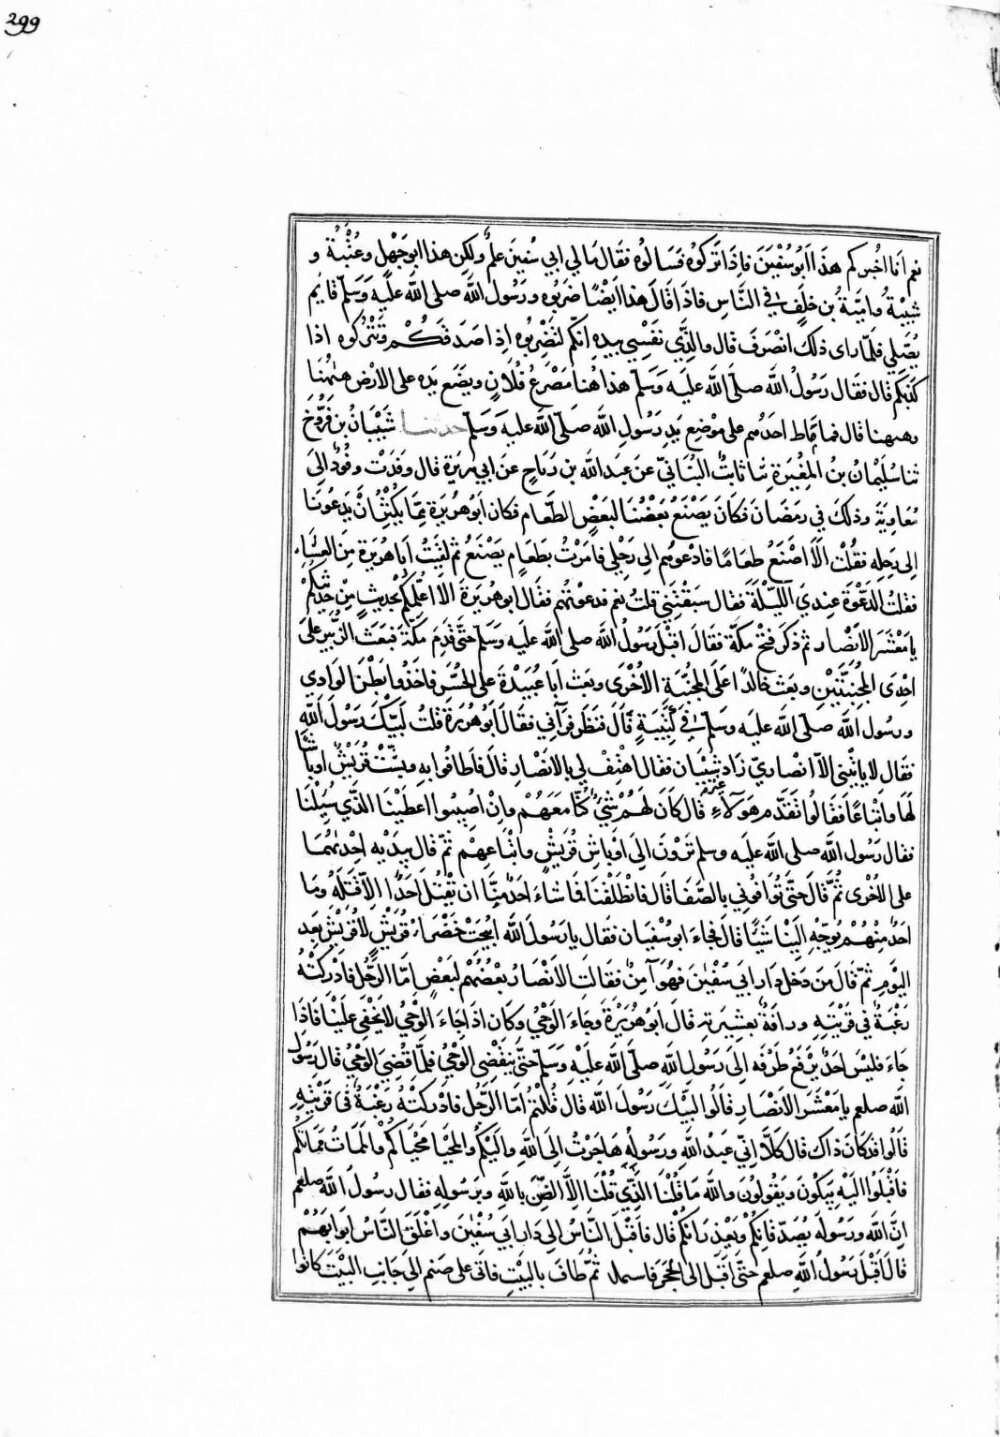 299
نعم انا اخبركم هذا ابو سُفْيَن فاِذَا تركوه فسالوه فقال مَا لِي بابي سُفيَن علمٌ ولكن هذا ابو جَهْلٍ وعُتْبَةُ و
شيْبَةُ واميّةُ بن خلَفٍ في النَّاس فاذَا قال هذا ايضًا ضَرَبوه ورسُول اللَّه صلى اللَّه عليه وَسَلم قايم
يُصَّلي فلمّا راى ذلك انصَرَفَ قال والذِّي نفسِي بيده انكم لتَضْربُوه اِذا صَدَقكُمْ وتتْرُكوه اذا
كذبكم قال فقال رَسُولُ اللَّه صلَّى اللَّه علَيه وَسَلّم هذا هُنا مَصْرَعُ فُلَانٍ ويَضَع يَدَه على الارض هٰهُنا
وههنا قال فما مَاط احدهُم على موْضعِ يَدِ رَسُولِ اللَّه صَلّى اللَّه عليه وَسَلّم حدثنا شَيْبَانُ بن فَرُّوخَ
ثنا سُلَيْمانُ بن المغيرَةِ ثنا ثابتٌ البُنانيّ عن عَبد اللَّه بن رَبَاحٍ عن ابي هُرَيرَة قال وفدَتْ وفُودٌ الى
مُعَاوِيَةَ وذلك في رمَضانَ فكانَ يَصْنَعُ بعْضُنَا لبَعْضٍ الطَّعام فكان ابو هُريرة ممّا يُكْثِرُ اَنْ يَدعُونَا
اِلى رحِله فقُلْتُ الَا اَصْنَعُ طعَامًا فادْعوهُم الى رَحْلِي فامرْتُ بطعَامٍ يُصْنَعُ ثم لقيتُ اَبا هُريرَة مِنَ العِشَاءِ
فقلتُ الدّعْوةُ عندِي اللّيْلَةَ فقال سبَقْتَني قلتُ نعم فدعوتهم فقال ابو هُريرَة الا اُعلّمكم بحَديثٍ مِنْ حَديثكُمْ
يا مَعْشَرَ الاَنصَار ثم ذكرَ فتْح مكّة فقال اقبَلَ رَسُولُ اللَّه صلى اللَّه علَيه وَسَلم حتّى قدِمَ مكّة فبَعَث الزّبَير على
احدى المجنّبتَيْن وبعَث خالدًا على المجنّبة الاُخْرَى وبعث اَبا عُبيْدَة على الحُسّر فاخذُوا بطْنَ الوَادِي
ورسُول اللَّه صلّى اللَّه علَيه وسَلَّم في كَتيبَةٍ قال فنَظَر فرآني فقال ابو هُريرة قلتُ لبّيْكَ رَسُولَ اللَّه
فقال لا ياتيني الّا انصاريّ زاد شيْبَان فقال اهْتِفْ لِي بالاَنْصَارِ قال فاطَافُوا به وبشّتْ قُرَيْشٌ اوبَاشًا
لهَا واتْبَاعًا فقالُوا نُقَدّم هؤلاءِ قال كانَ لهُمْ شَيْءٌ كُنّا معَهُمْ وانْ اصيبُوا اعطَيْنَا الذّي سُئِلْنَا
فقال رَسُول اللَّه صلى اللَّه عليه وسلم تَرَوْن الى اوباشِ قُريْشٍ واتْباعِهِمْ ثم قال بيدَيْه احديهُمَا
على الاخْرى ثُمّ قال حتّى تُوَافُوني بالصَّفا قال فانطلَقْنا فما شاءَ احدٌ منّا ان يَقتُل احَدًا الا قتَلَهُ ومَا
احَدٌ منهُمْ يُوجّه الينَا شَيْئًا قال فجاءَ ابو سُفيَان فقال يا رَسُولَ اللَّه ابيحَتْ خَضْرَاءُ قُريْشٍ لا قُريْشَ بعد
اليَوم ثمّ قال مَن دخل دَار ابي سُفْيَن فهُوَ آمنٌ فقالَتِ الاَنْصَارُ بعْضُهُمْ لبَعْضٍ امّا الرّجُل فادْركَتْهُ
رَغْبَةٌ في قرْيَتِه ورافَةٌ بعشِيرَته قال ابو هُريْرَة وجَاءَ الوَحْيُ وكان اذا جَاءَ الوَحْيُ لا يَخْفى علَيْنا فاذا
جاءَ فليْسَ احَدٌ يَرْفَعُ طَرْفَه الى رَسُولِ اللَّه صلّى اللَّه علَيْه وسَلم حتّى ينْقَضي الوَحْيُ فلمّا قُضِي الوَحْيُ قال رَسُولُ
اللَّه صلعم يا مَعْشَرَ الاَنْصَارِ قالُوا لبّيْكَ رَسُولَ اللَّه قال قُلْتُمْ امّا الرّجُل فادْركَتْهُ رغْبَةٌ في قرْيَتِه
قالُوا قد كانَ ذاك قال كَلّا اِنّي عَبدُ اللَّه ورَسُولُه هاجَرْتُ الى اللَّه واليكُم والمحْيَا محْيَاكُم والمَمَاتُ مماتكُم
فاقْبَلُوا الَيْهِ يَبكُونَ ويَقُولُونَ واللَّه مَا قُلْنَا الذّي قُلْنَا الّا الضّنَّ باللَّه وبرسُولِه فقال رسُولُ اللَّه صلعم
اِنَّ اللَّه ورَسُولَه يُصَدّقانكُمْ ويَعْذِرَانكُم قال فاقبَلَ النَّاسُ الى دَارِ ابي سُفْيَن واغْلَقَ النَّاسُ ابوابَهُمْ
قال اَقْبَلَ رَسُولُ اللَّه صلعم حتّى اقبَل الى الحَجَر فاستلم ثمّ طاف بالبيْتِ فاتى على صَنَمٍ الى جَانِبِ البَيْتِ كانُوا